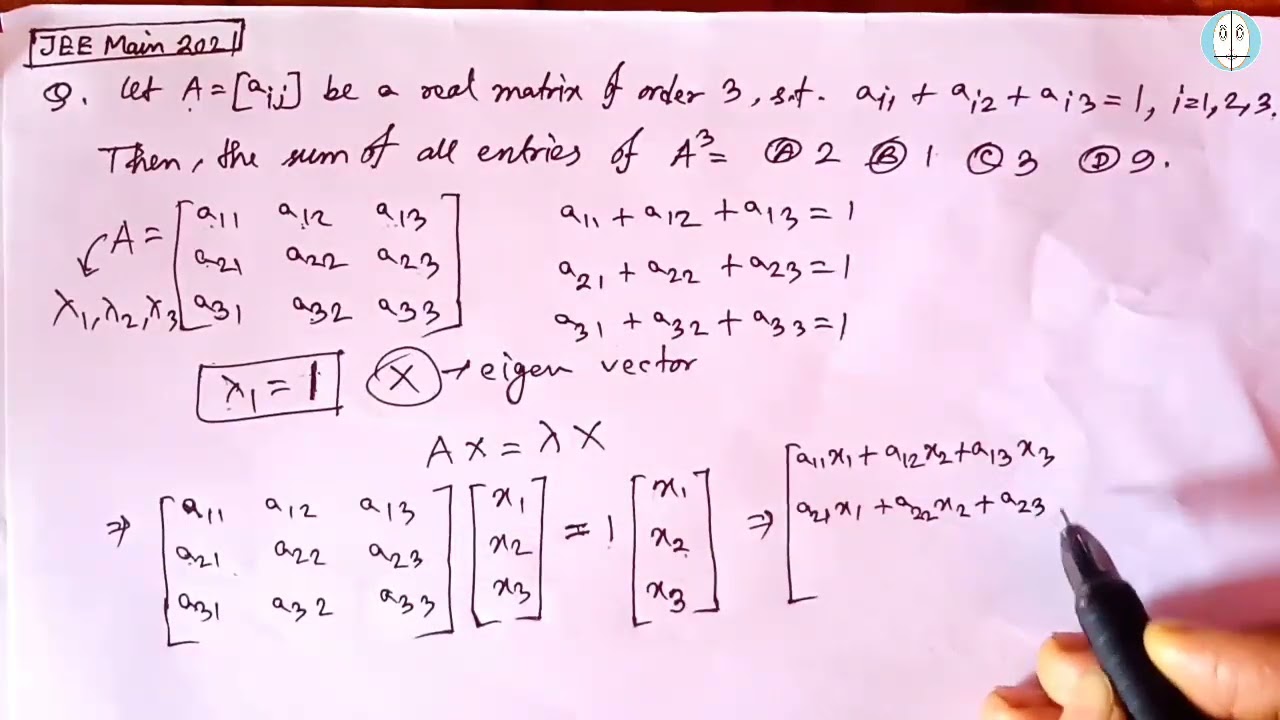 JEE Main 2021
Q. Let A = [aij] be a real matrix of order 3, s.t. ai1 + ai2 + ai3 = 1, i=1,2,3.
Then, the sum of all entries of A³= Ⓐ 2 Ⓑ 1 Ⓒ 3 Ⓓ 9.
A = [a11 a12 a13 a11 + a12 + a13 = 1
a21 a22 a23 a21 + a22 + a23 = 1
λ1, λ2, λ3 a31 a32 a33] a31 + a32 + a33 = 1
λ1 = 1 X → eigen vector
A X = λ X
⇒ [a11 a12 a13 a21 a22 a23 a31 a32 a33] [x1 x2 x3] = 1 [x1 x2 x3] ⇒ [a11x1 + a12x2 + a13x3
a21x1 + a22x2 + a23